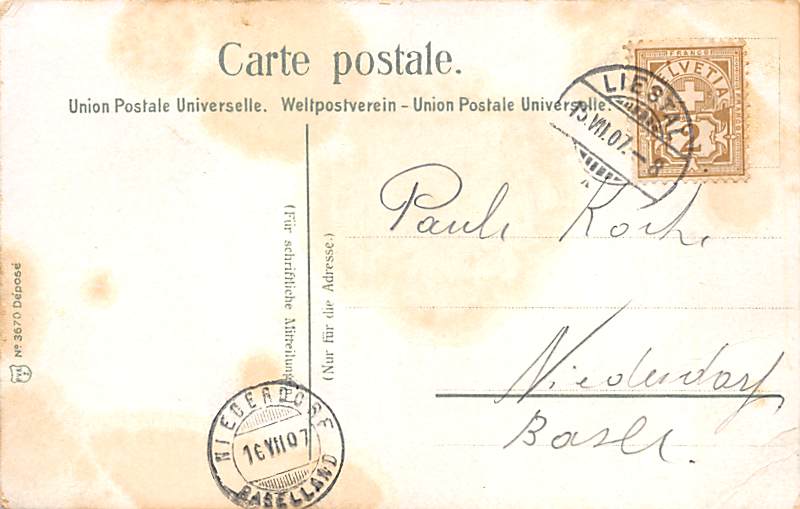 Carte postale.
Union Postale Universelle. Weltpostverein – Union Postale Universelle.
FRANCO
HELVETIA
LIESTAL
15.VII.07.–8
(Für schriftliche Mitteilung
(Nur für die Adresse.)
Nº 3670 Déposé
Niederdorf
Basell.
NIEDERDORF
16 VII 07
BASELLAND